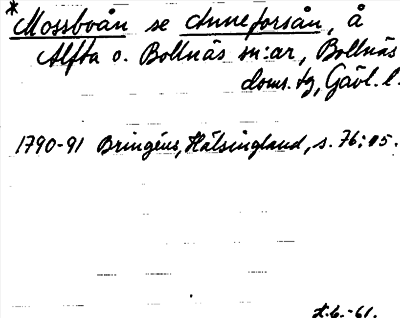 * Mossboån se Anneforsån, å
Alfta o. Bollnäs sn:ar, Bollnäs
doms.tg, Gävl. l.
1790-91 Bringéus, Hälsingland, s. 76: 15.
t.b.-61.